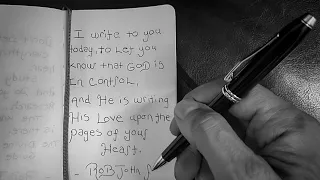 I write to you
today, to let you
know that GOD is
In control,
And He is writing
His Love upon the
pages of your
Heart.
- ROB John